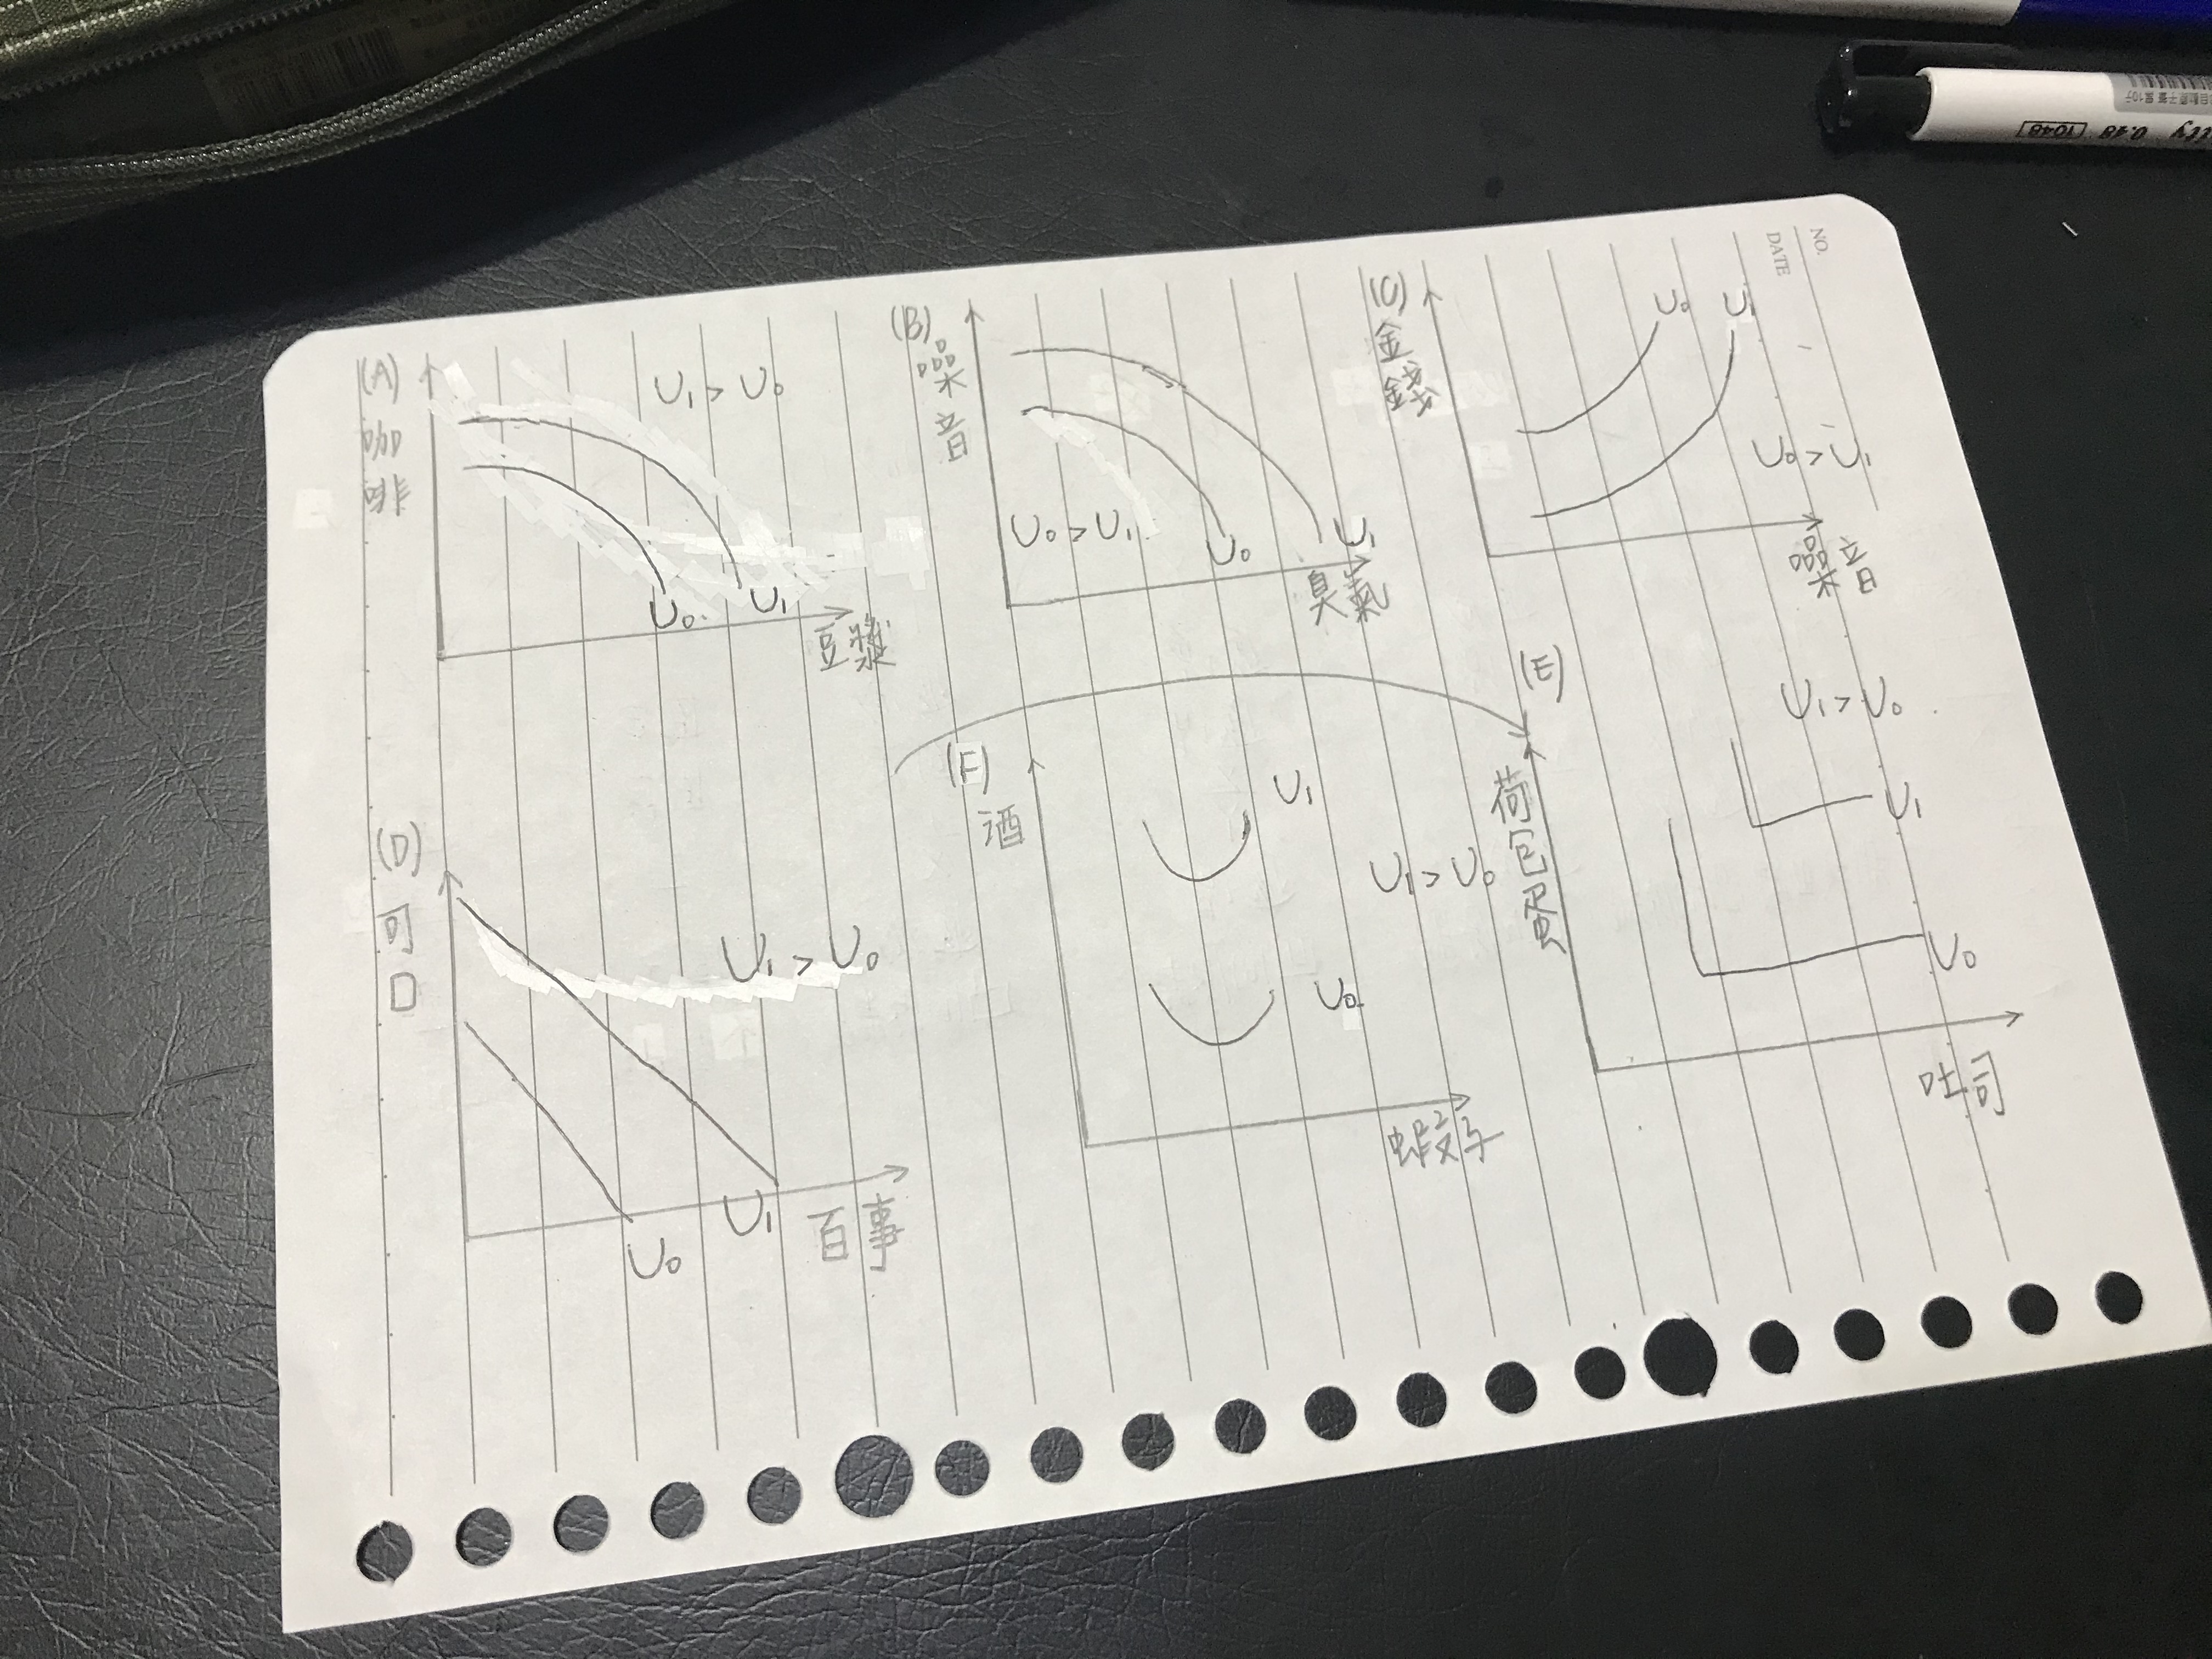 NO.
DATE
(A)
咖啡
U₁ > U₀
U₀
U₁
豆漿
(B)
噪音
U₀ > U₁
U₀
U₁
臭氣
(C)
金錢
U₀
U₁
U₀ > U₁
噪音
(D)
可口
U₁ > U₀
U₀
U₁
百事
(F)
酒
U₁
U₁ > U₀
U₀
蝦子
(E)
荷包蛋
U₁ > U₀
U₁
U₀
吐司
0.48
1048